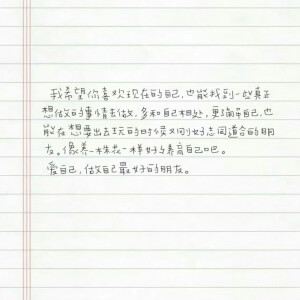 我希望你喜欢现在的自己,也能找到一些真正
想做的事情去做,多和自己相处,更了解自己,也
能在想要出去玩的时候叫好志同道合的朋
友。像养一株花一样好好养育自己吧。
爱自己,做自己最好的朋友。